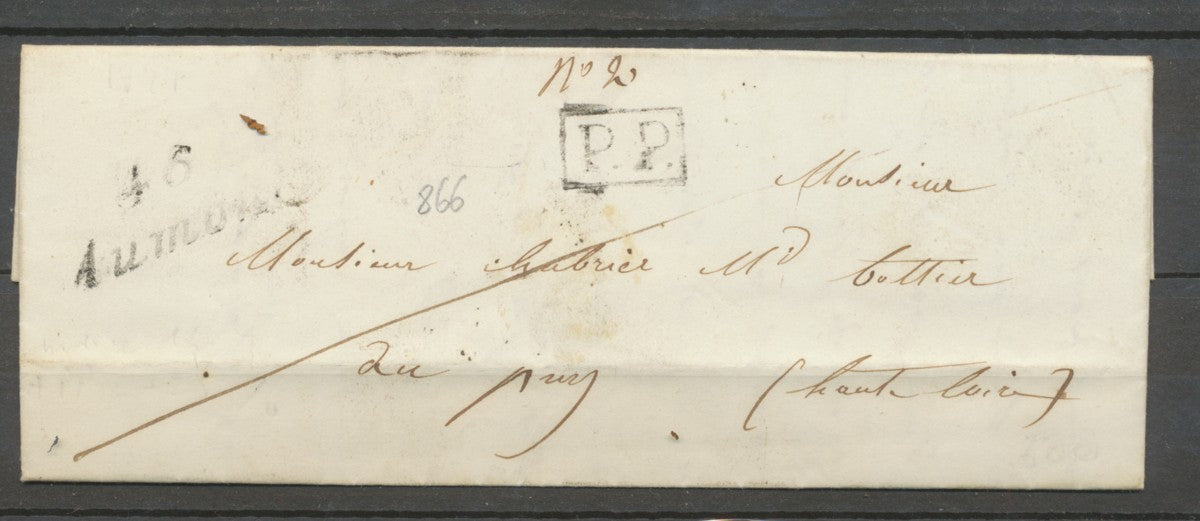 No 2
P.P.
46
Aumont
866
Monsieur
Monsieur Chabrier Md bottier
au puy (haute loire)